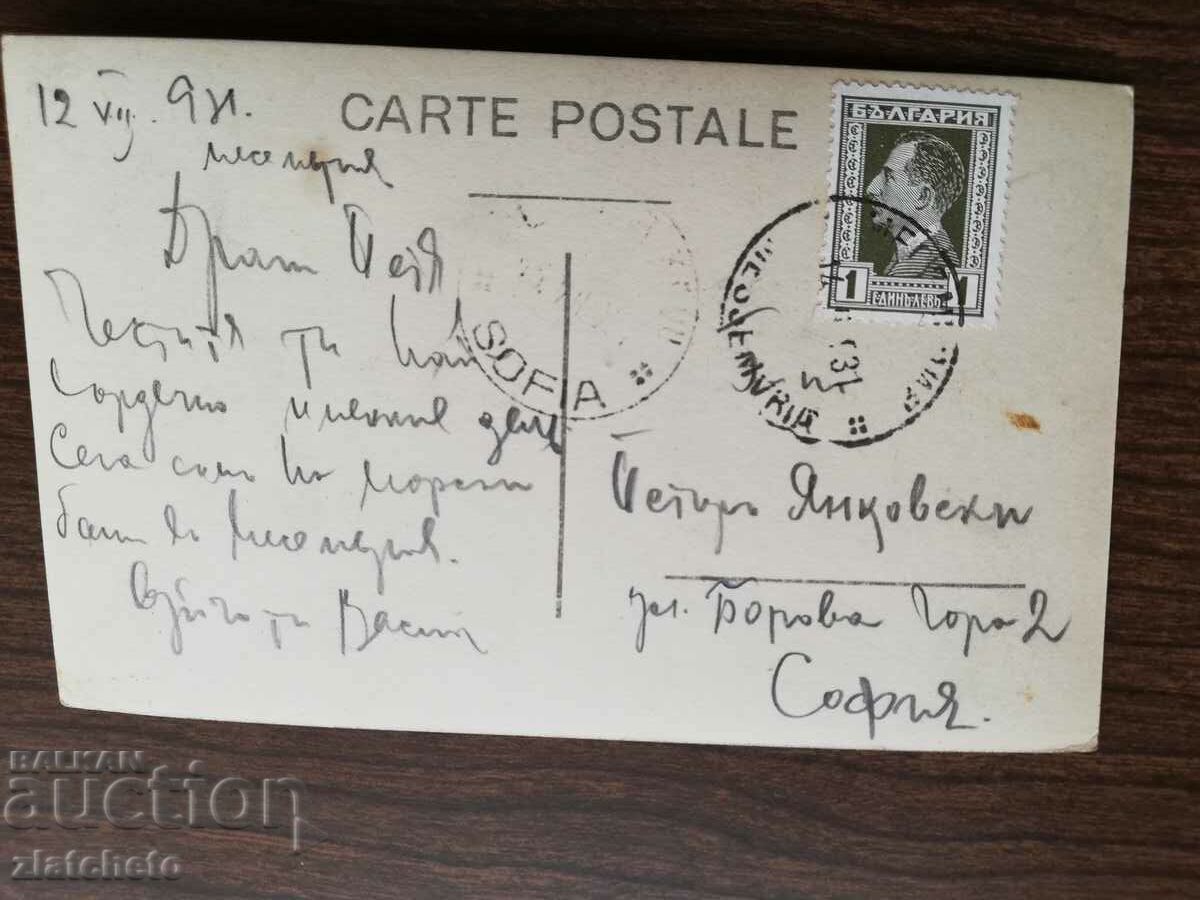 12 VII. 931.
CARTE POSTALE
Месемврия
БЪЛГАРИЯ
1 1
ЕДИНЪ ЛЕВЪ
Драги Петя
Честитя ти най
сърдечно имения день
Сега съм на морски
бани в Месемврия.
ти Васил
SOFIA
MESEMVRIA
Петъръ Янковски
ул. Борова Гора 2
София.
BALKAN
auction
zlatcheto